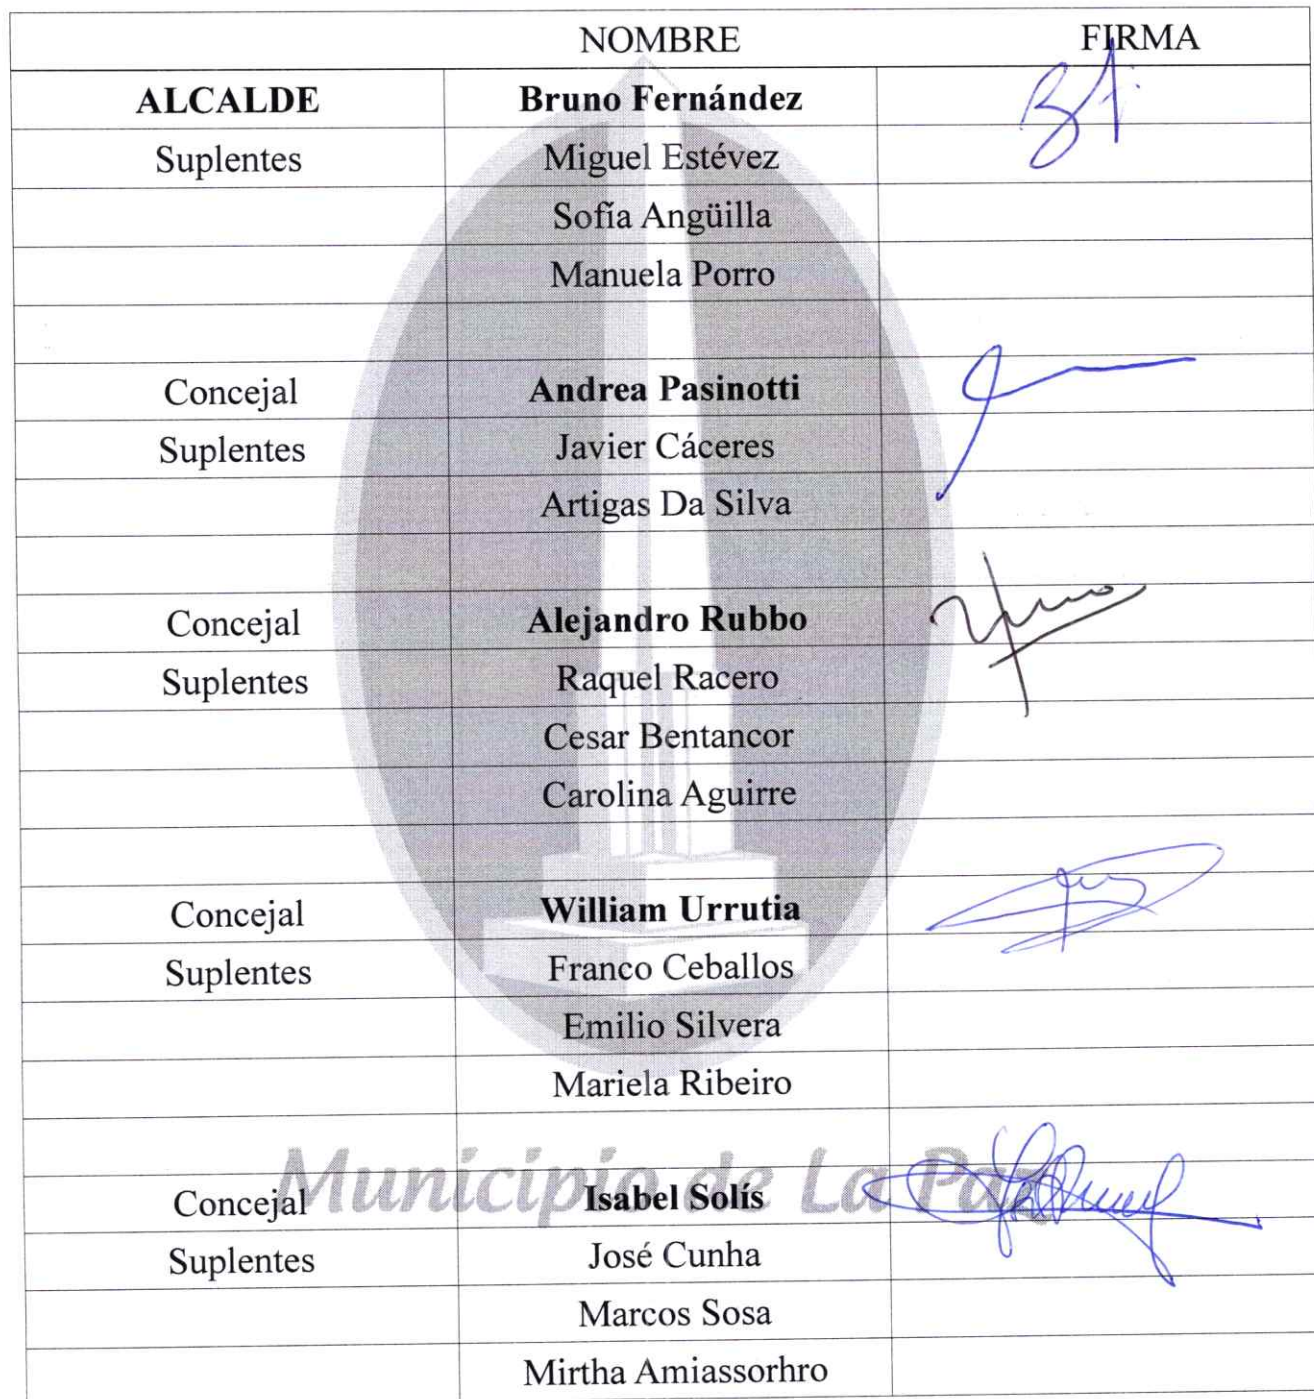 NOMBRE FIRMA
ALCALDE Bruno Fernández
Suplentes Miguel Estévez
Sofía Angüilla
Manuela Porro
Concejal Andrea Pasinotti
Suplentes Javier Cáceres
Artigas Da Silva
Concejal Alejandro Rubbo
Suplentes Raquel Racero
Cesar Bentancor
Carolina Aguirre
Concejal William Urrutia
Suplentes Franco Ceballos
Emilio Silvera
Mariela Ribeiro
Municipio de La Paz
Concejal Isabel Solís
Suplentes José Cunha
Marcos Sosa
Mirtha Amiassorhro